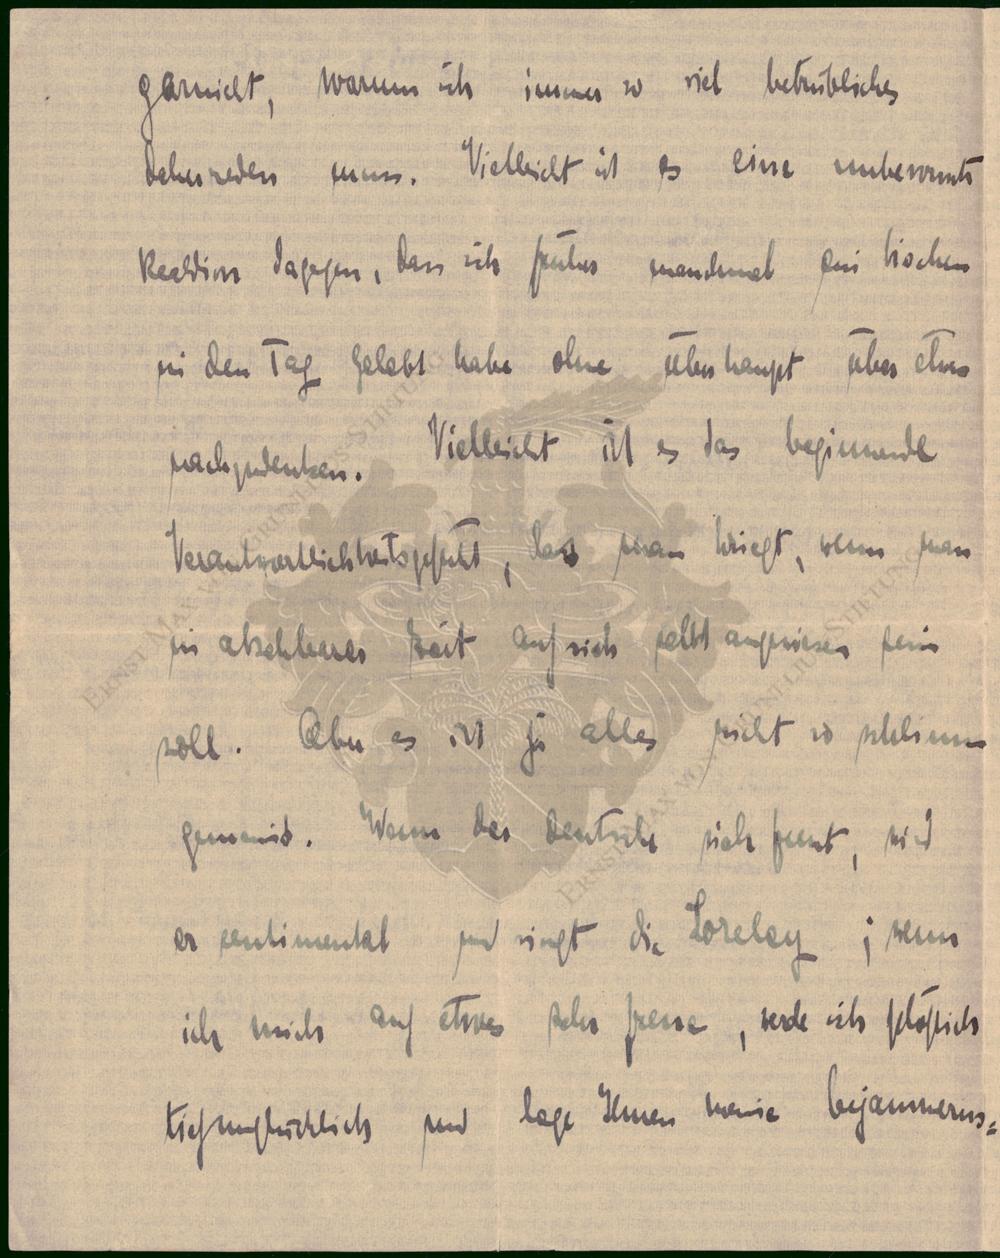 garnicht, warum ich immer so viel betrübliches
daherreden muss. Vielleicht ist es eine unbewusste
Reaktion dagegen, dass ich früher manchmal ein bischen
in den Tag gelebt habe ohne überhaupt über etwas
nachzudenken. Vielleicht ist es das beginnende
Verantwortlichkeitsgefühl, das man kriegt, wenn man
in absehbarer Zeit auf sich selbst angewiesen sein
soll. Aber es ist ja alles nicht so schlimm
gemeint. Wenn der Deutsche sich freut, wird
er sentimental und singt die Loreley; wenn
ich mich auf etwas sehr freue, werde ich plötzlich
tiefunglücklich und sage Ihnen meine bejammerns=
ERNST MAX VON GRUNELIUS-STIFTUNG
ERNST MAX VON GRUNELIUS-STIFTUNG